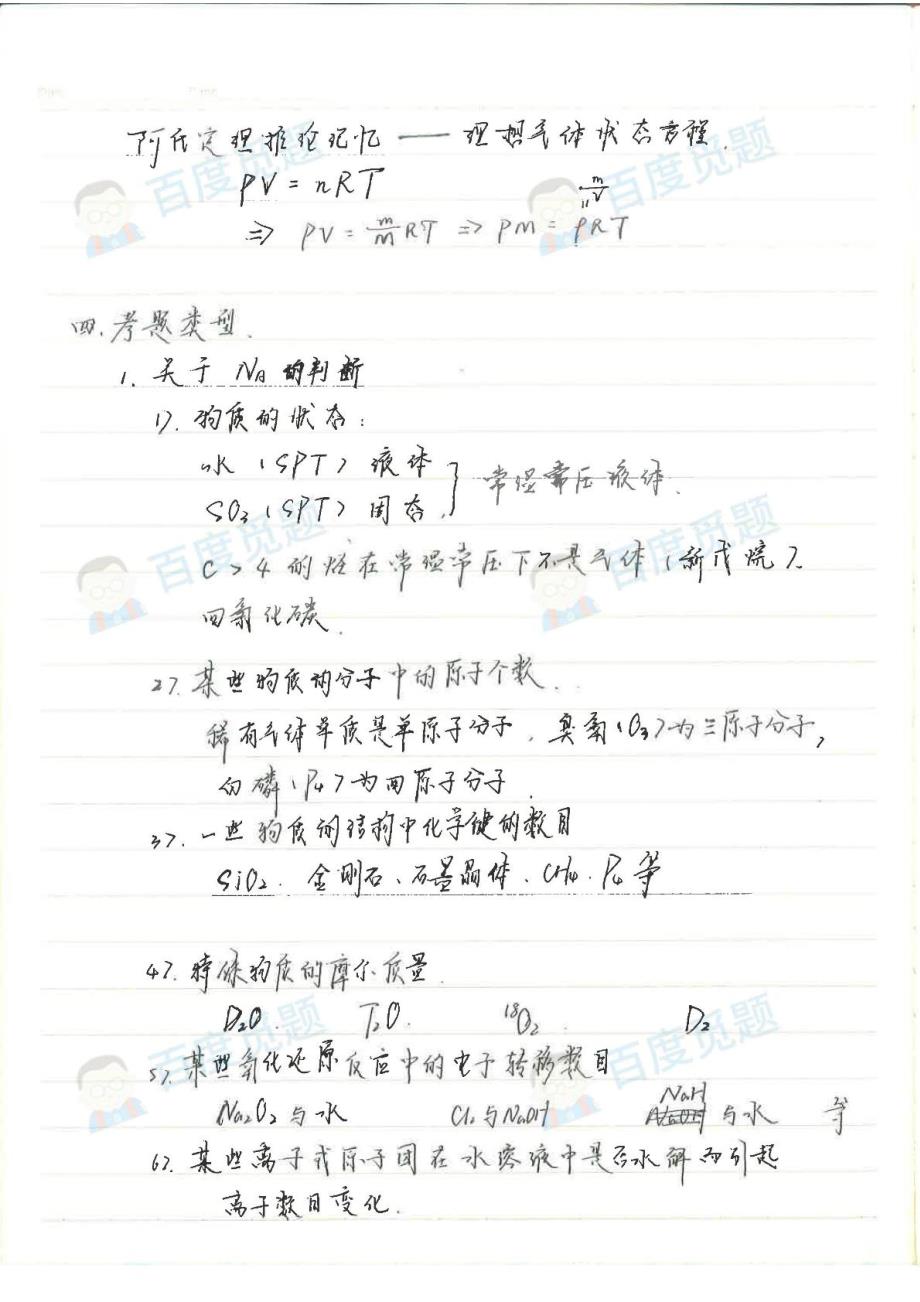 阿氏定理推论记忆 —— 理想气体状态方程.
PV = nRT
m/V
=
⇒ PV = m/M RT ⇒ PM = ρRT
四、考题类型.
1. 关于 NA 的判断
1). 物质的状态:
(SPT) 液体
SO3 (SPT) 固态.
} 常温常压液体.
C>4 的烃在常温常压下不是气体 (新戊烷).
四氯化碳.
2). 某些物质的分子中的原子个数.
稀有气体单质是单原子分子, 臭氧(O3)为三原子分子,
白磷(P4)为四原子分子.
3). 一些物质的结构中化学键的数目
SiO2. 金刚石、石墨晶体、CH4. P4等
4). 特殊物质的摩尔质量.
D2O. T2O. 18O2. D2
5). 某些氧化还原反应中的电子转移数目
Na2O2 与水 Cl2与NaOH NaH 与水 等
6). 某些离子或原子团在水溶液中是否水解而引起
离子数目变化.
百度觅题
百度觅题
百度觅题
百度觅题
百度觅题
百度觅题